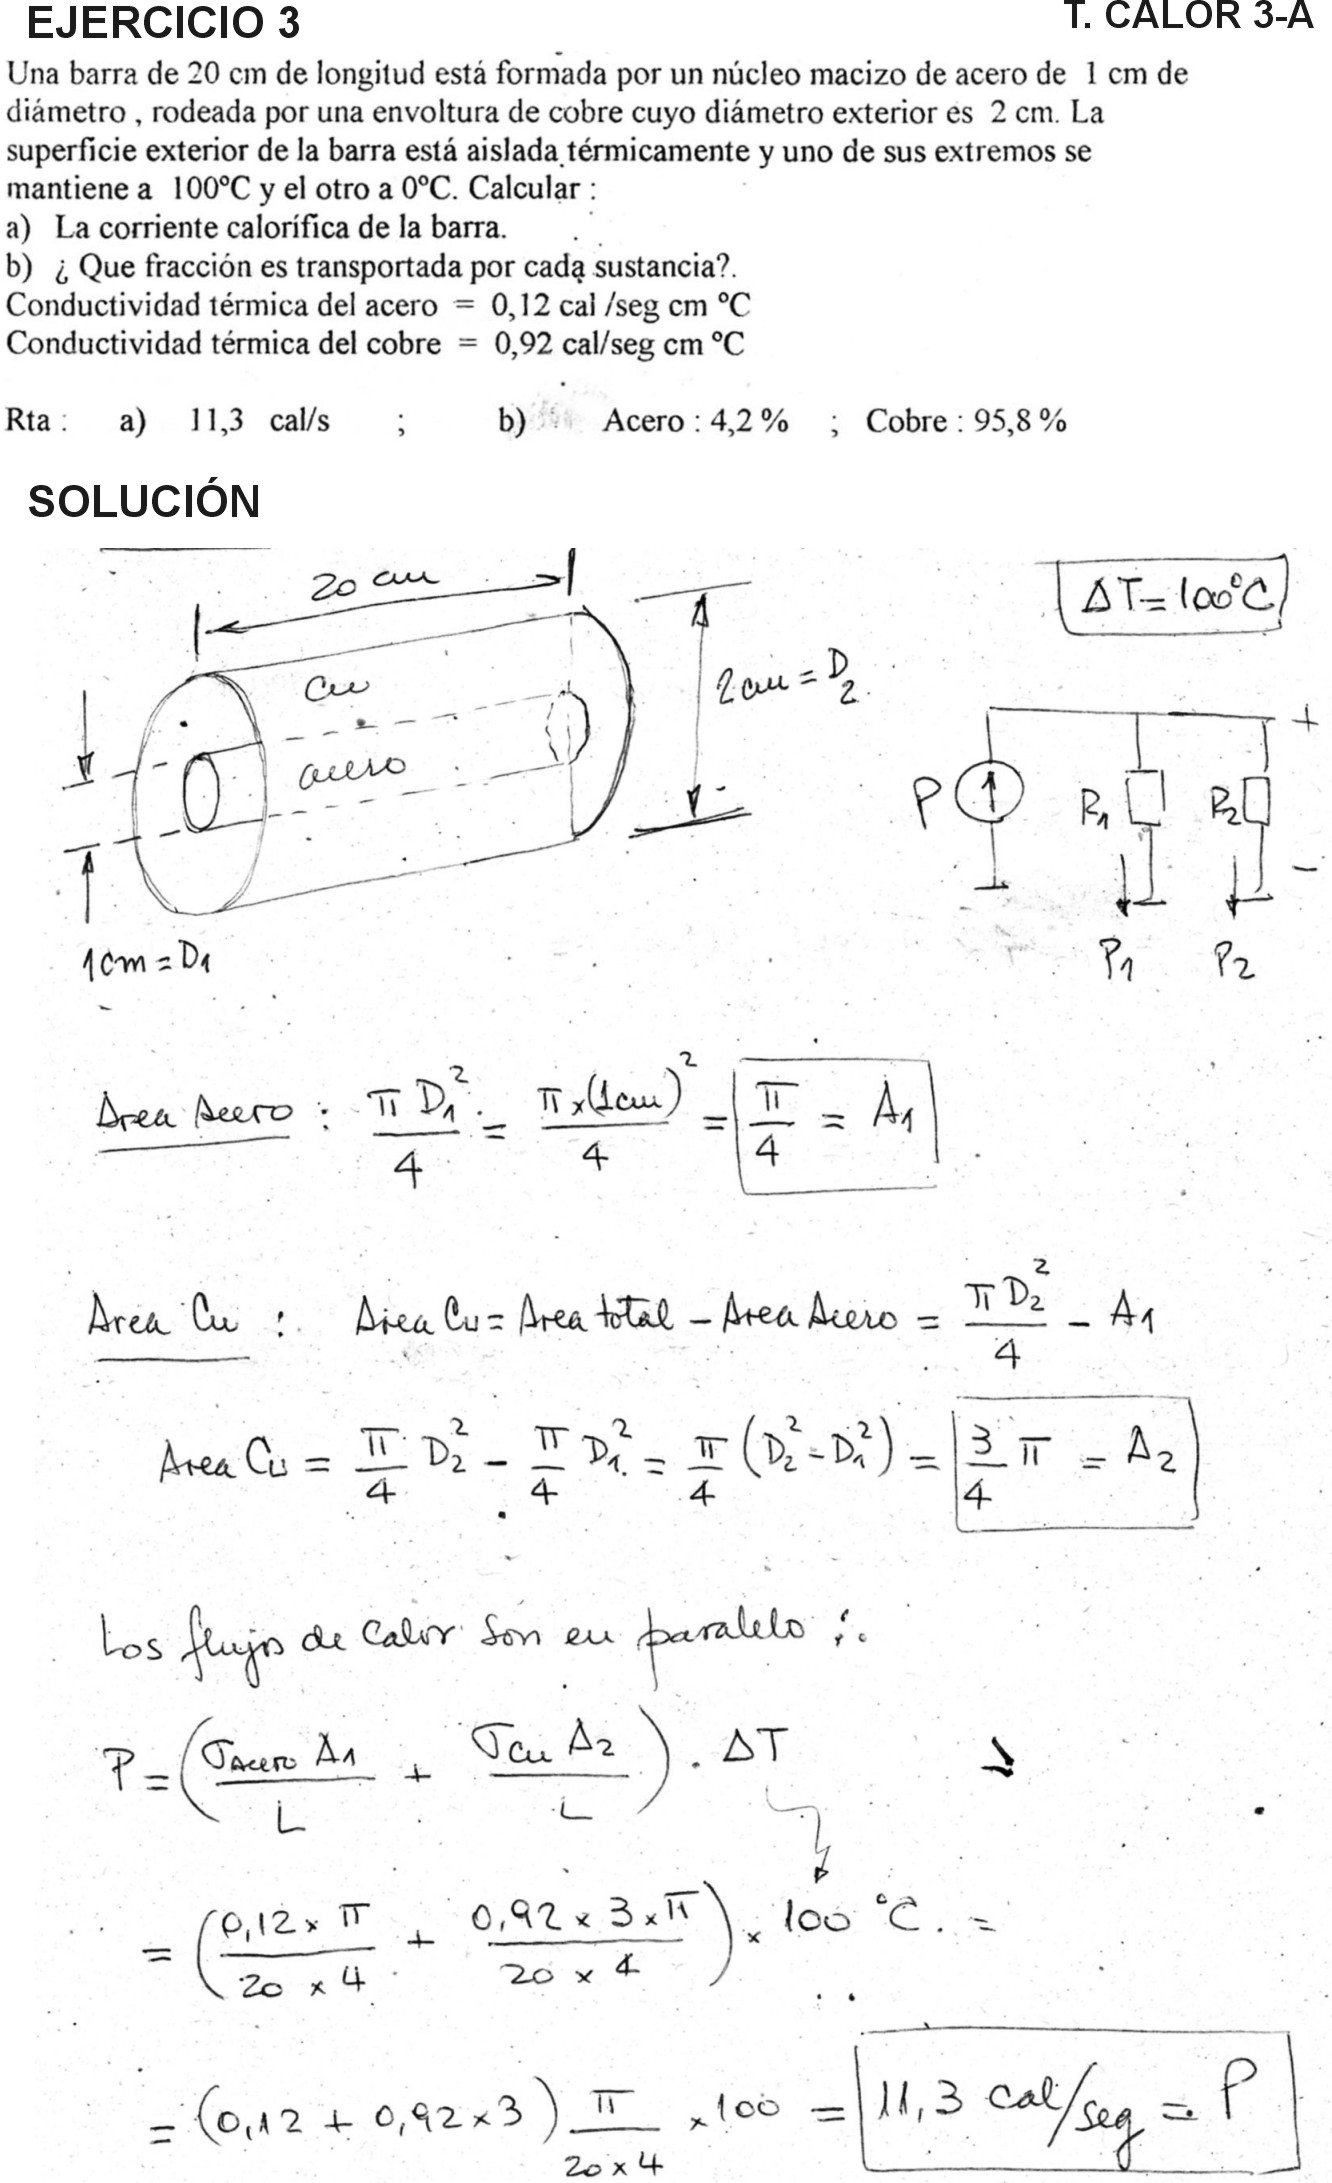 EJERCICIO 3
T. CALOR 3-A
Una barra de 20 cm de longitud está formada por un núcleo macizo de acero de 1 cm de
diámetro , rodeada por una envoltura de cobre cuyo diámetro exterior es 2 cm. La
superficie exterior de la barra está aislada térmicamente y uno de sus extremos se
mantiene a 100ºC y el otro a 0ºC. Calcular :
a) La corriente calorífica de la barra.
b) ¿ Que fracción es transportada por cada sustancia?.
Conductividad térmica del acero = 0,12 cal /seg cm ºC
Conductividad térmica del cobre = 0,92 cal/seg cm ºC
Rta : a) 11,3 cal/s ; b) Acero : 4,2 % ; Cobre : 95,8 %
SOLUCIÓN
20 cm
ΔT = 100°C
Cu
2 cm = D₂
acero
+
P R₁ R₂
-
1 cm = D₁
P₁ P₂
Area Acero : π D₁² / 4 = π x (1cm)² / 4 = π / 4 = A₁
Area Cu : Area Cu = Area total - Area Acero = π D₂² / 4 - A₁
Area Cu = π / 4 D₂² - π / 4 D₁² = π / 4 (D₂² - D₁²) = 3 / 4 π = A₂
Los flujos de calor son en paralelo ∴
P = (σAcero A₁ / L + σCu A₂ / L) . ΔT
= (0,12 x π / 20 x 4 + 0,92 x 3 x π / 20 x 4) x 100 °C. =
= (0,12 + 0,92 x 3) π / 20 x 4 x 100 = 11,3 cal/seg = P